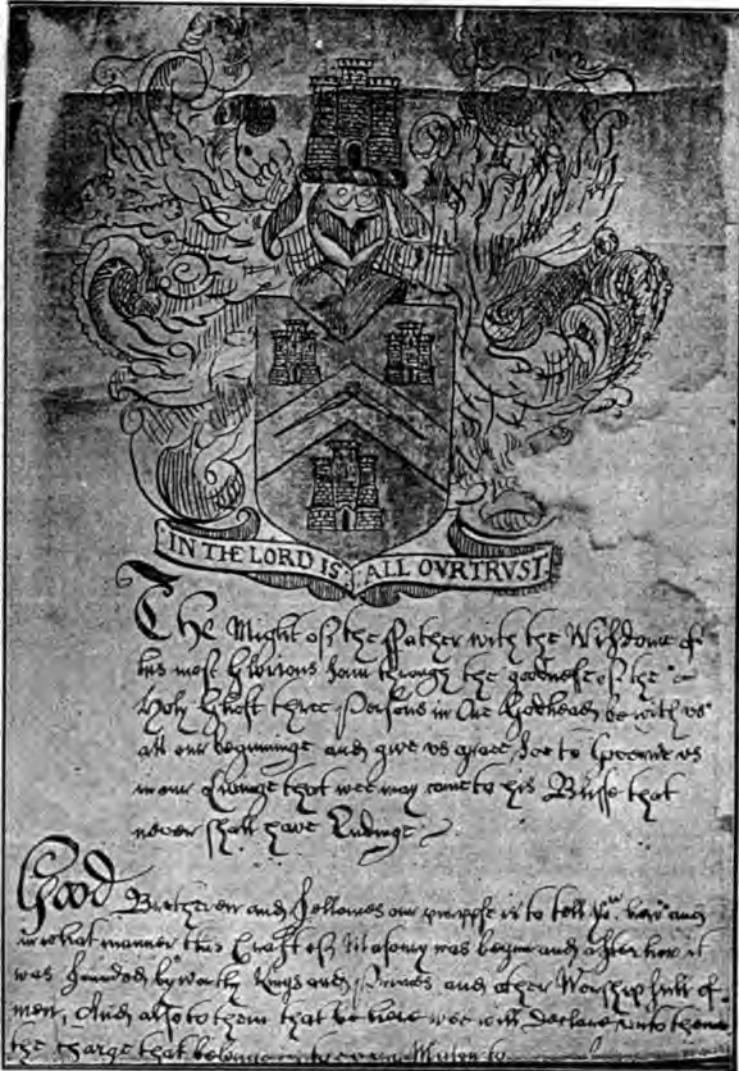 IN THE LORD IS ALL OVR TRVST
The Might of the ffather with the Wisdome of
his most Glorious Sonn through the goodnesse of the
Holy Ghost three Persons in One Godhead be with vs
att our beginninge and give vs grace soe to Governe vs
in our Livinge that wee may come to his Blisse that
never shall have Endinge
Good Bretheren and Fellowes our purpose is to tell you how and
in what manner this Craft of Masonry was begun and after how it
was founded by worthy Kings and Princes and other Worshipfull
men, And also to them that be here wee will Declare unto them
the Charge that belongeth to every Mason to